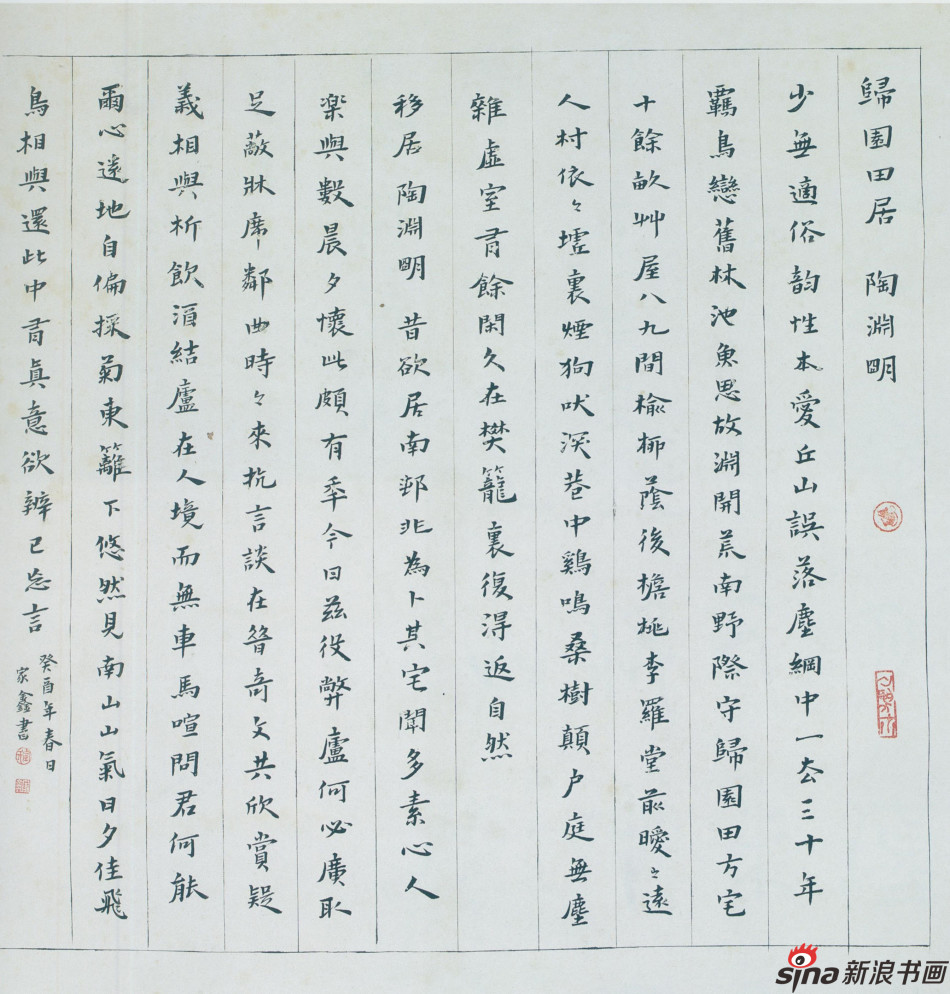 歸園田居 陶淵明
少無適俗韵性本愛丘山誤落塵網中一去三十年
羈鳥戀舊林池魚思故淵開荒南野際守歸園田方宅
十餘畝艸屋八九間榆柳蔭後檐桃李羅堂前曖〻遠
人村依〻墟裏煙狗吠深巷中鷄鳴桑樹顛戶庭無塵
雜虛室有餘閑久在樊籠裏復得返自然
移居陶淵明 昔欲居南邨非為卜其宅聞多素心人
楽與數晨夕懷此頗有年今日茲役弊廬何必廣取
足蔽牀席鄰曲時〻來抗言談在昔奇文共欣賞疑
義相與析飲酒結廬在人境而無車馬喧問君何能
爾心遠地自偏採菊東籬下悠然見南山山氣日夕佳飛
鳥相與還此中有真意欲辨已忘言
癸酉年春日
家鑫書
sina新浪书画